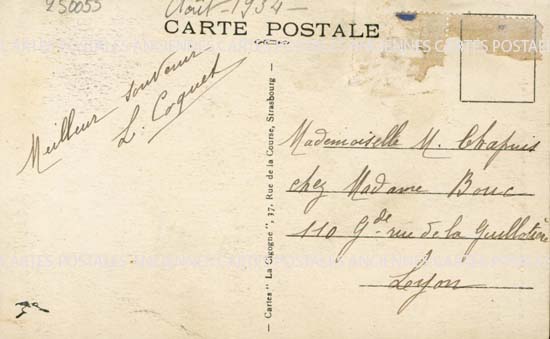 250055
Août - 1934 -
CARTE POSTALE
Meilleur souvenir
L. Coquet
Cartes "La Cigogne", 37, Rue de la Course, Strasbourg
Mademoiselle M. Chapuis
chez Madame Bouc
110 Gde rue de la Guillotière
Lyon
CARTES POSTALES ANCIENNES CARTES POSTALES
CARTES POSTALES ANCIENNES CARTES POSTALES